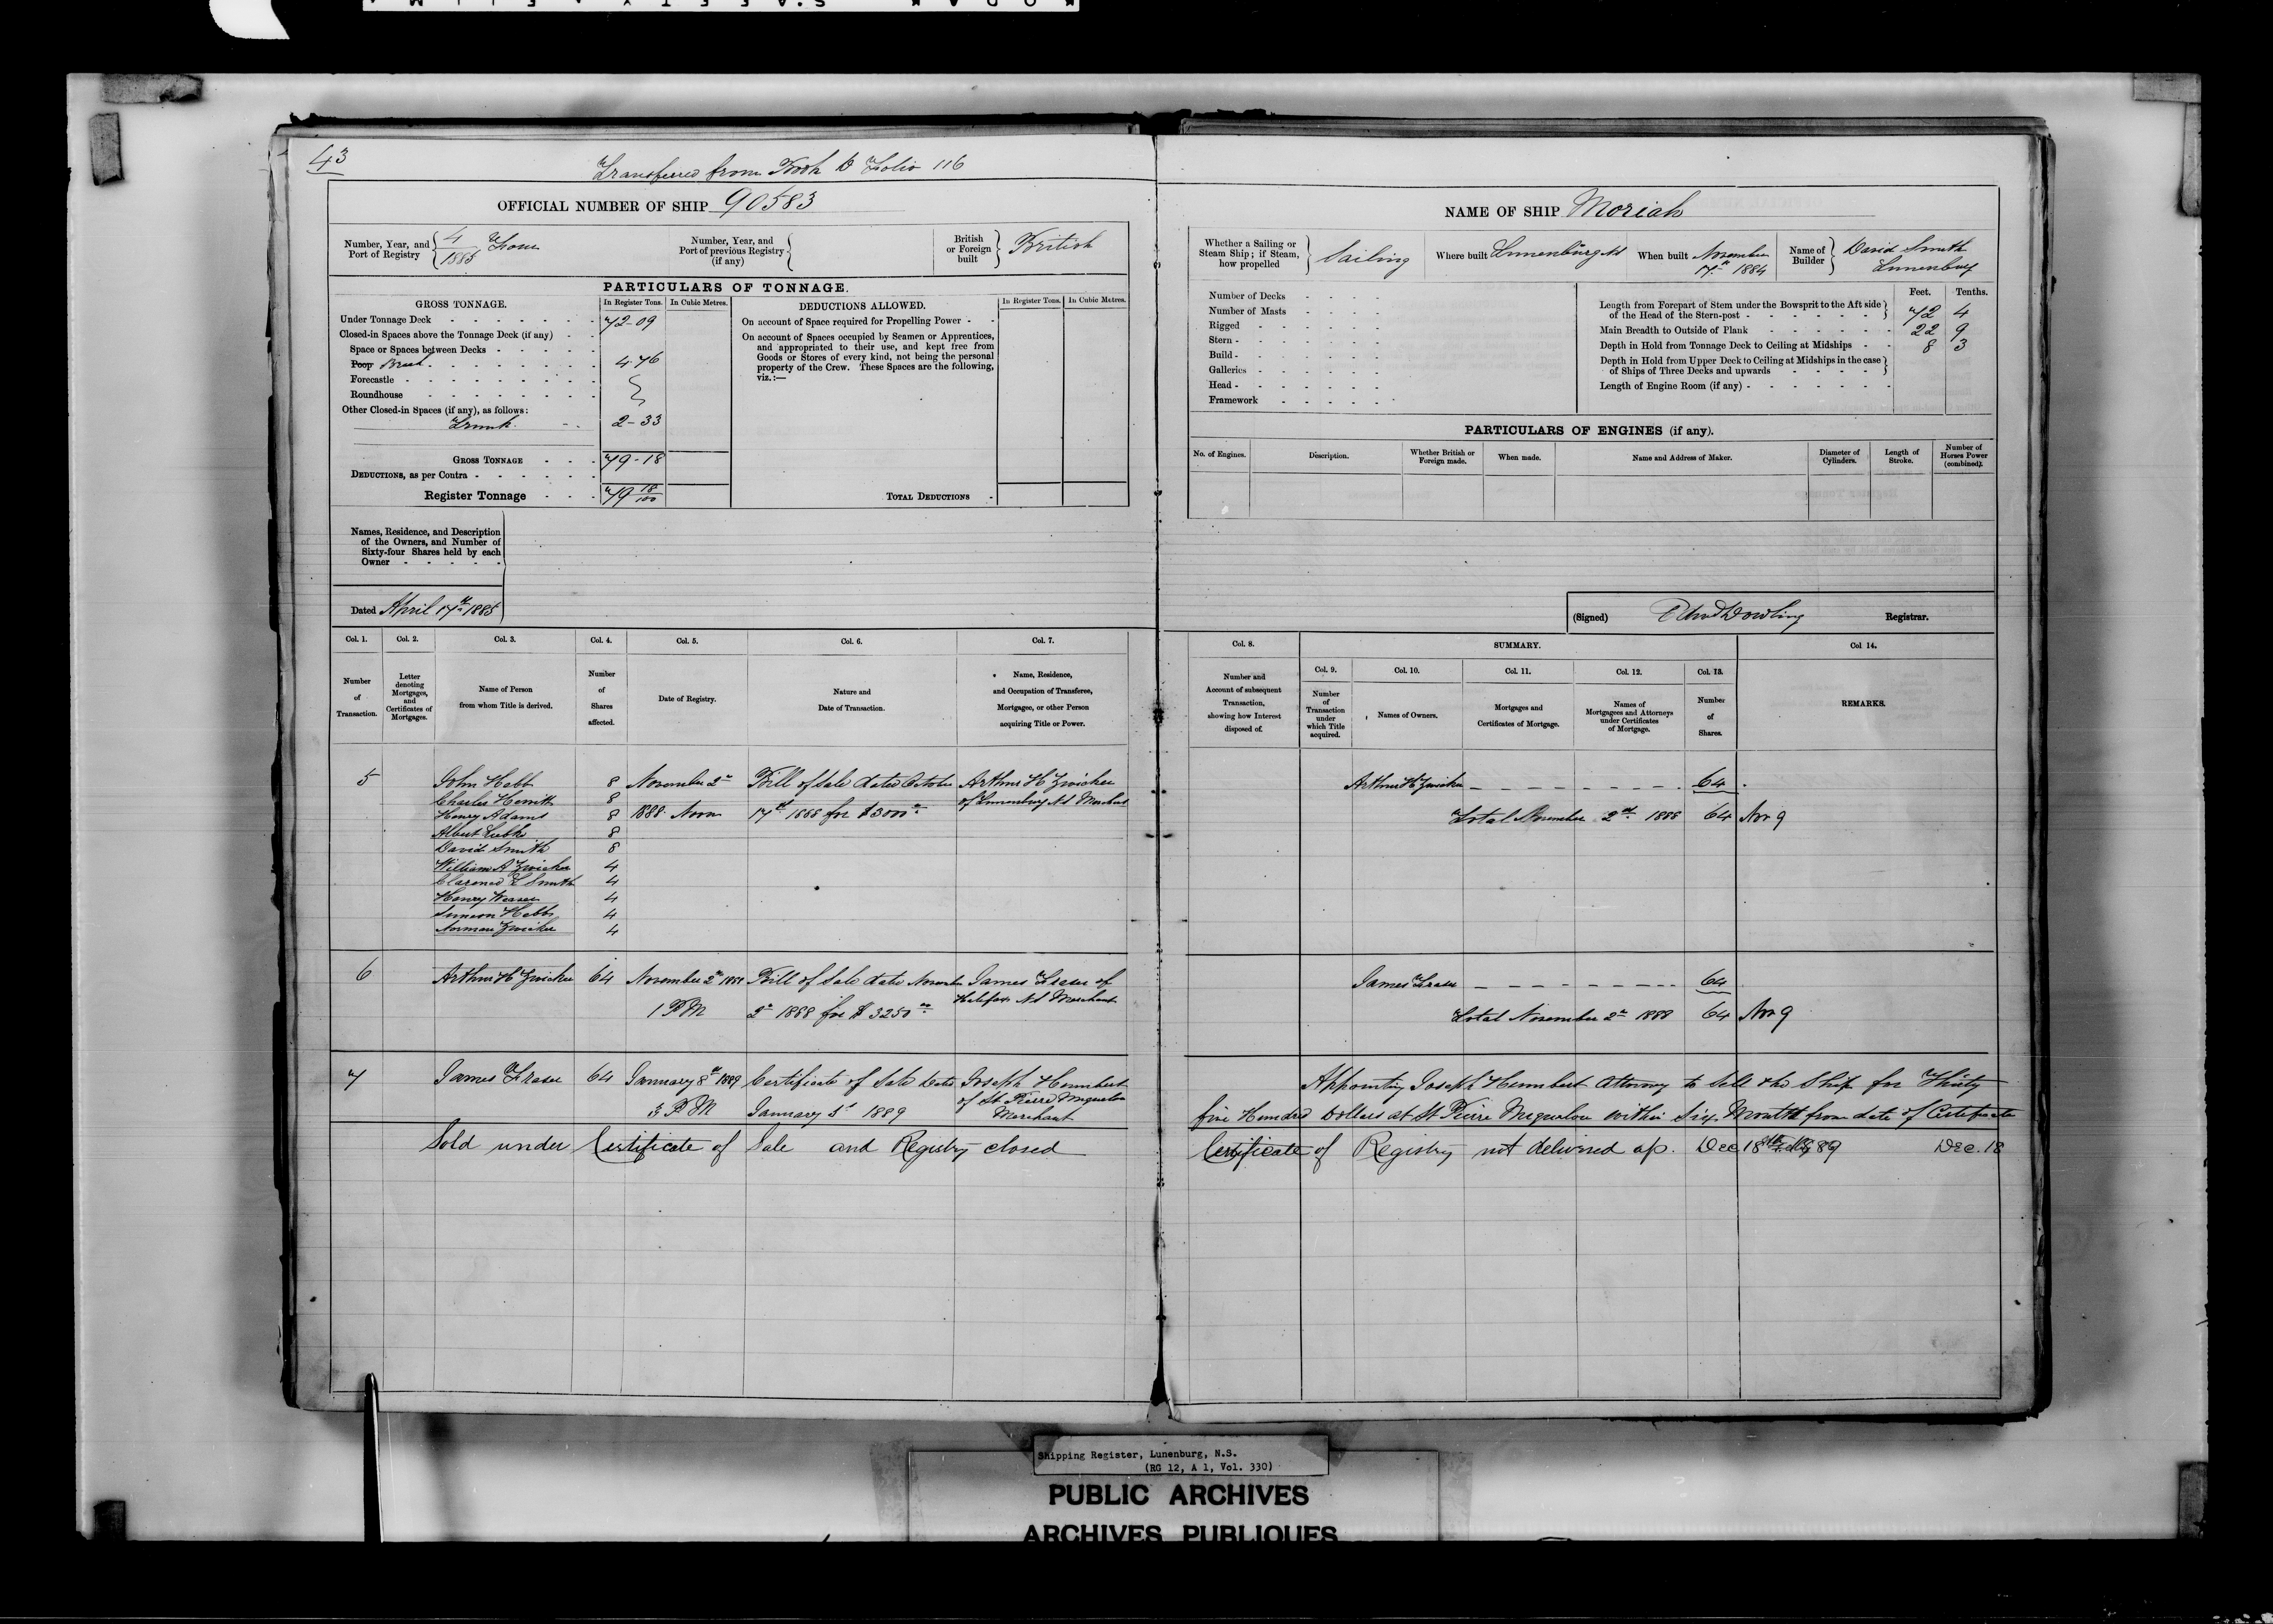 43
Transferred from Book D Folio 116
OFFICIAL NUMBER OF SHIP 90583
Number, Year, and Port of Registry 4/1885 Four
Number, Year, and Port of previous Registry (if any)
British or Foreign built British
PARTICULARS OF TONNAGE.
GROSS TONNAGE. In Register Tons. In Cubic Metres.
Under Tonnage Deck 72-09
Closed-in Spaces above the Tonnage Deck (if any)
Space or Spaces between Decks
Poop Break 4.76
Forecastle
Roundhouse
Other Closed-in Spaces (if any), as follows:
Trunk 2-33
GROSS TONNAGE 79-18
DEDUCTIONS, as per Contra
Register Tonnage 79 18/100
DEDUCTIONS ALLOWED. In Register Tons. In Cubic Metres.
On account of Space required for Propelling Power
On account of Spaces occupied by Seamen or Apprentices,
and appropriated to their use, and kept free from
Goods or Stores of every kind, not being the personal
property of the Crew. These Spaces are the following,
viz.:—
TOTAL DEDUCTIONS
Names, Residence, and Description
of the Owners, and Number of
Sixty-four Shares held by each
Owner
Dated April 17th 1885
Col. 1. Col. 2. Col. 3. Col. 4. Col. 5. Col. 6. Col. 7.
Number of Transaction.
Letter denoting Mortgages, and Certificates of Mortgages.
Name of Person from whom Title is derived.
Number of Shares affected.
Date of Registry.
Nature and Date of Transaction.
Name, Residence, and Occupation of Transferee, Mortgagee, or other Person acquiring Title or Power.
5 John Hebb 8 November 2nd Bill of Sale dated October Arthur H Zwicker
Charles Hewitt 8 of Lunenburg NS Merchant
Henry Adams 8 1888 Noon 17th 1888 for $3000
Albert Eisnor 8
David Smith 8
William A Zwicker 4
Clarence E Smith 4
Henry Weaver 4
Simeon Hebb 4
Norman Zwicker 4
6 Arthur H Zwicker 64 November 2nd 1888 Bill of Sale dated November James Fraser of
Halifax NS Merchant
1 PM 2nd 1888 for $3250
7 James Fraser 64 January 8th 1889 Certificate of Sale dated Joseph Humbert
of St Pierre Miquelon
3 PM January 5th 1889 Merchant
Sold under Certificate of Sale and Registry closed
NAME OF SHIP Moriah
Whether a Sailing or Steam Ship; if Steam, how propelled Sailing
Where built Lunenburg NS
When built November 17th 1884
Name of Builder David Smith Lunenburg
Number of Decks
Number of Masts
Rigged
Stern
Build
Galleries
Head
Framework
Feet. Tenths.
Length from Forepart of Stem under the Bowsprit to the Aft side
of the Head of the Stern-post 72 4
Main Breadth to Outside of Plank 22 9
Depth in Hold from Tonnage Deck to Ceiling at Midships 8 3
Depth in Hold from Upper Deck to Ceiling at Midships in the case
of Ships of Three Decks and upwards
Length of Engine Room (if any)
PARTICULARS OF ENGINES (if any).
No. of Engines. Description. Whether British or Foreign made. When made. Name and Address of Maker. Diameter of Cylinders. Length of Stroke. Number of Horses Power (combined).
(Signed) Edwd Dowling Registrar.
Col. 8. SUMMARY. Col. 14.
Col. 9. Col. 10. Col. 11. Col. 12. Col. 13.
Number and Account of subsequent Transaction, showing how Interest disposed of.
Number of Transaction under which Title acquired.
Names of Owners.
Mortgages and Certificates of Mortgage.
Names of Mortgagees and Attorneys under Certificates of Mortgage.
Number of Shares.
REMARKS.
Arthur H Zwicker 64
Total November 2nd 1888 64 Nov 9
James Fraser 64
Total November 2nd 1888 64 Nov 9
Appointing Joseph Humbert Attorney to Sell the Ship for Thirty
five Hundred Dollars at St Pierre Miquelon within Six Months from date of Certificate
Certificate of Registry not delivered up. Dec 18th 1889 Dec. 18
Shipping Register, Lunenburg, N.S.
(RG 12, A 1, Vol. 330)
PUBLIC ARCHIVES
ARCHIVES PUBLIQUES